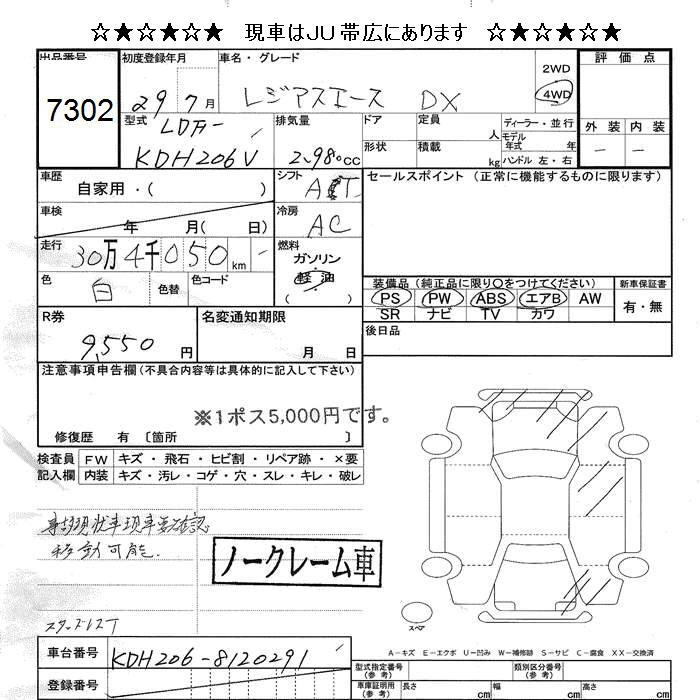 ☆★☆★☆★ 現車はJU帯広にあります ☆★☆★☆★
出品番号 初度登録年月 車名・グレード 評価点
7302 29 7月 レジアスエース DX 2WD 4WD
型式 LDF- 排気量 ドア 定員 人 ディーラー・並行 外装 内装
KDH206V 2.980cc 形状 積載 kg モデル年式 年 ハンドル 左・右 － －
車歴 自家用・( ) シフト AT セールスポイント (正常に機能するものに限ります)
車検 年 月( 日) 冷房 AC
走行 30万4千050km 燃料 ガソリン 軽油
色 白 色替 色コード 装備品 (純正品に限り○をつけてください) 新車保証書
PS PW ABS エアB AW 有・無
SR ナビ TV カワ
R券 9,550円 名変通知期限 月 日 後日品
注意事項申告欄(不具合内容等は具体的に記入して下さい)
※1ポス5,000円です。
修復歴 有 〔箇所 〕
検査員 FW キズ・飛石・ヒビ割・リペア跡・×要
記入欄 内装 キズ・汚レ・コゲ・穴・スレ・キレ・破レ
事故現状車現車要確認
移動可能.
ノークレーム車
スペア
A－キズ E－エクボ U－凹み W－補修跡 S－サビ C－腐食 XX－交換済
車台番号 KDH206-8120291 型式指定番号(参考) 類別区分番号(参考)
登録番号 車庫証明用(参考) 長さ cm 幅 cm 高さ cm